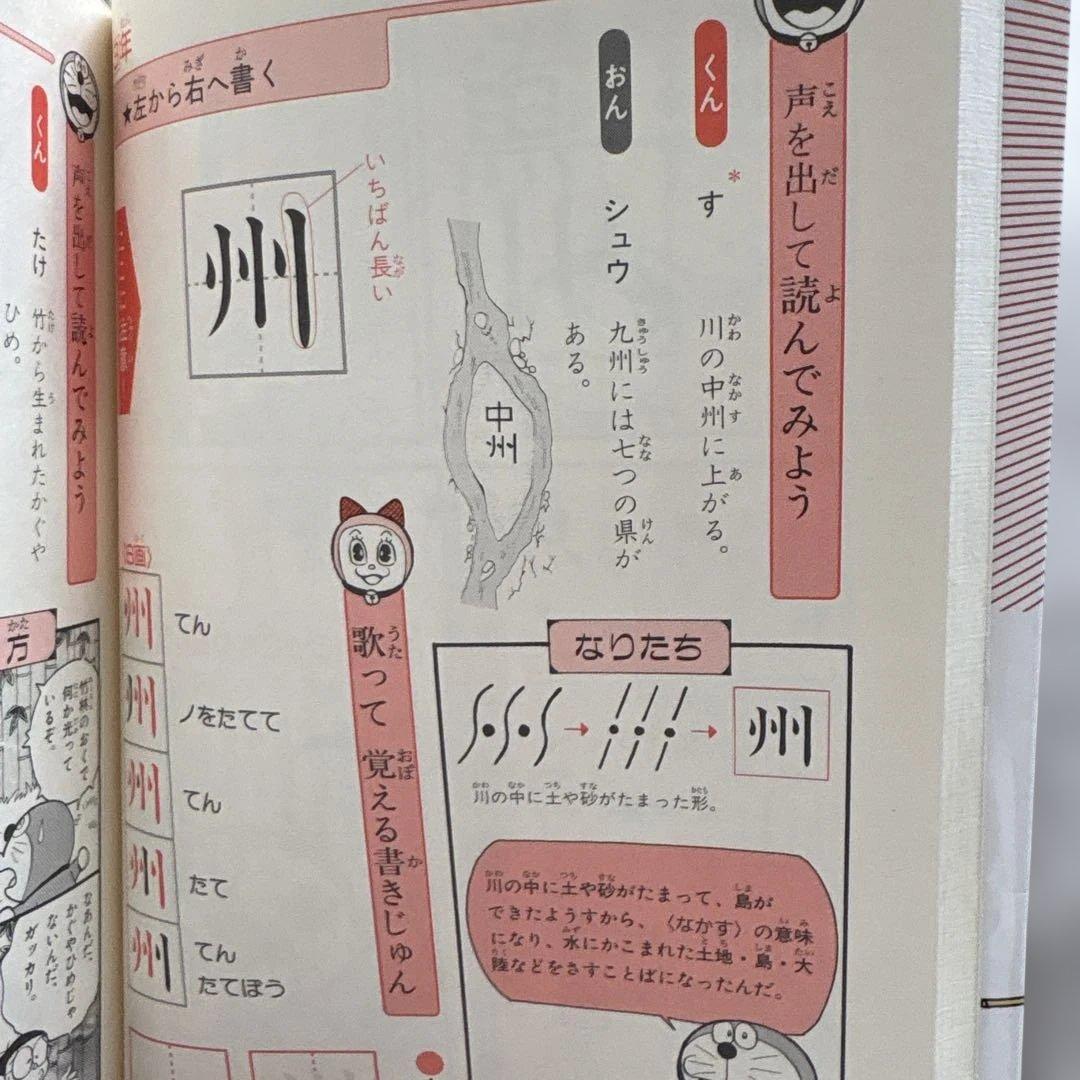 声を出して読んでみよう
くん
す
川の中州に上がる。
おん
シュウ
九州には七つの県が
ある。
中州
★左から右へ書く
州
いちばん長い
なりたち
州
川の中に土や砂がたまった形。
川の中に土や砂がたまって、島が
できたようすから、〈なかす〉の意味
になり、水にかこまれた土地・島・大
陸などをさすことばになったんだ。
歌って覚える書きじゅん
州
てん
州
ノをたてて
州
てん
州
たて
州
てん
たてぼう
声を出して読んでみよう
くん
たけ
竹から生まれたかぐや
ひめ。
方
竹林のおくで
何か光って
いるぞ。
なあんだ、
かぐやひめじゃ
ないんだ。
ガッカリ。